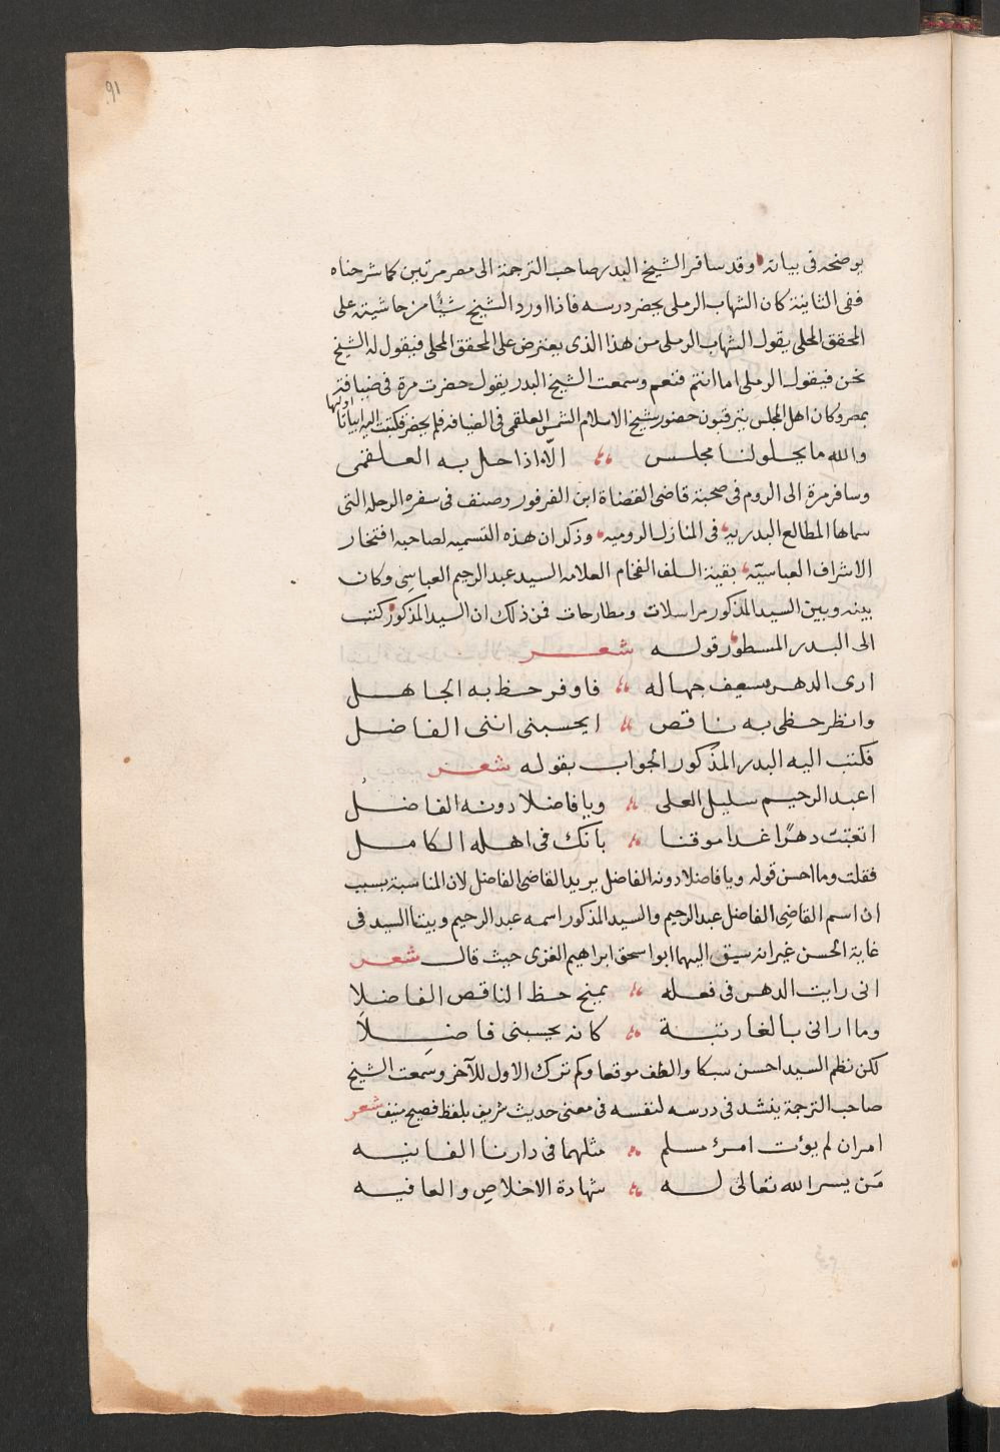 91
يوضحه فى بيانه وقد سافر الشيخ البدر صاحب الترجمة الى مصر مرتين كما شرحناه
ففى الثانية كان الشهاب الرملى يحضر درسه فاذا اورد الشيخ شيًا من حاشيته على
المحقق المحلى يقول الشهاب الرملى من هذا الذى يعترض على المحقق المحلى فيقول له الشيخ
نحن فيقول الرملى اما انتم فنعم وسمعت الشيخ البدر يقول حضرت مرة فى ضيافة
بمصر وكان اهل المجلس يترقبون حضور شيخ الاسلام الشمس العلقمى فى الضيافه فلم يحضر فكتبت اليه ابياتا اولها
والله ما يحلو لنا مجلس الّا اذا حل به العلقمى
وسافر مرة الى الروم فى صحبة قاضى القضاة ابن الفرفور وصنف فى سفره الرحله التى
سماها المطالع البدريه فى المنازل الروميه وذكر ان هذه التسميه لصاحبه افتخار
الاشراف العباسيّه بقية السلف الفخام العلامه السيد عبد الرحيم العباسِى وكان
بينه وبين السيد المذكور مراسلات ومطارحات فمن ذلك ان السيد المذكور كتب
الى البدر المسطور قوله شعر
ارى الدهر يسعف جهاله فاوفر حظ به الجاهل
وانظر حظى به ناقص ايحسبنى اننى الفاضل
فكتب اليه البدر المذكور الجواب بقوله شعر
اعبد الرحيم سليل العلى ويا فاضلا دونه الفاضلُ
اتعتبت دهرًا غدا موقنا بانك فى اهله الكامل
فقلت وما احسن قوله ويا فاضلا دونه الفاضل يريد القاضى الفاضل لان المناسبة بسبب
ان اسم القاضِى الفاضل عبد الرحيم والسيد المذكور اسمه عبد الرحيم وبيتا السيد فى
غاية الحسن غير انه سبق اليهما ابو اسحق ابراهيم الغزى حيث قال شعر
انى رايت الدهر فى فعله يمنح حظ الناقص الفاضلا
وما ارانى بالغا رتبة كانه يحسبنى فاضِلًا
لكن نظم السيد احسن سبكا والطف موقعا وكم ترك الاول للآخر وسمعت الشيخ
صاحب الترجمة ينشد فى درسه لنفسه فى معنى حديث شريف بلفظ فصيح منيف شعر
امران لم يوءت امرئ مسلم مثلهما فى دارنا الفانيه
مَن يسر الله تعالى له شهادة الاخلاصِ والعافيه